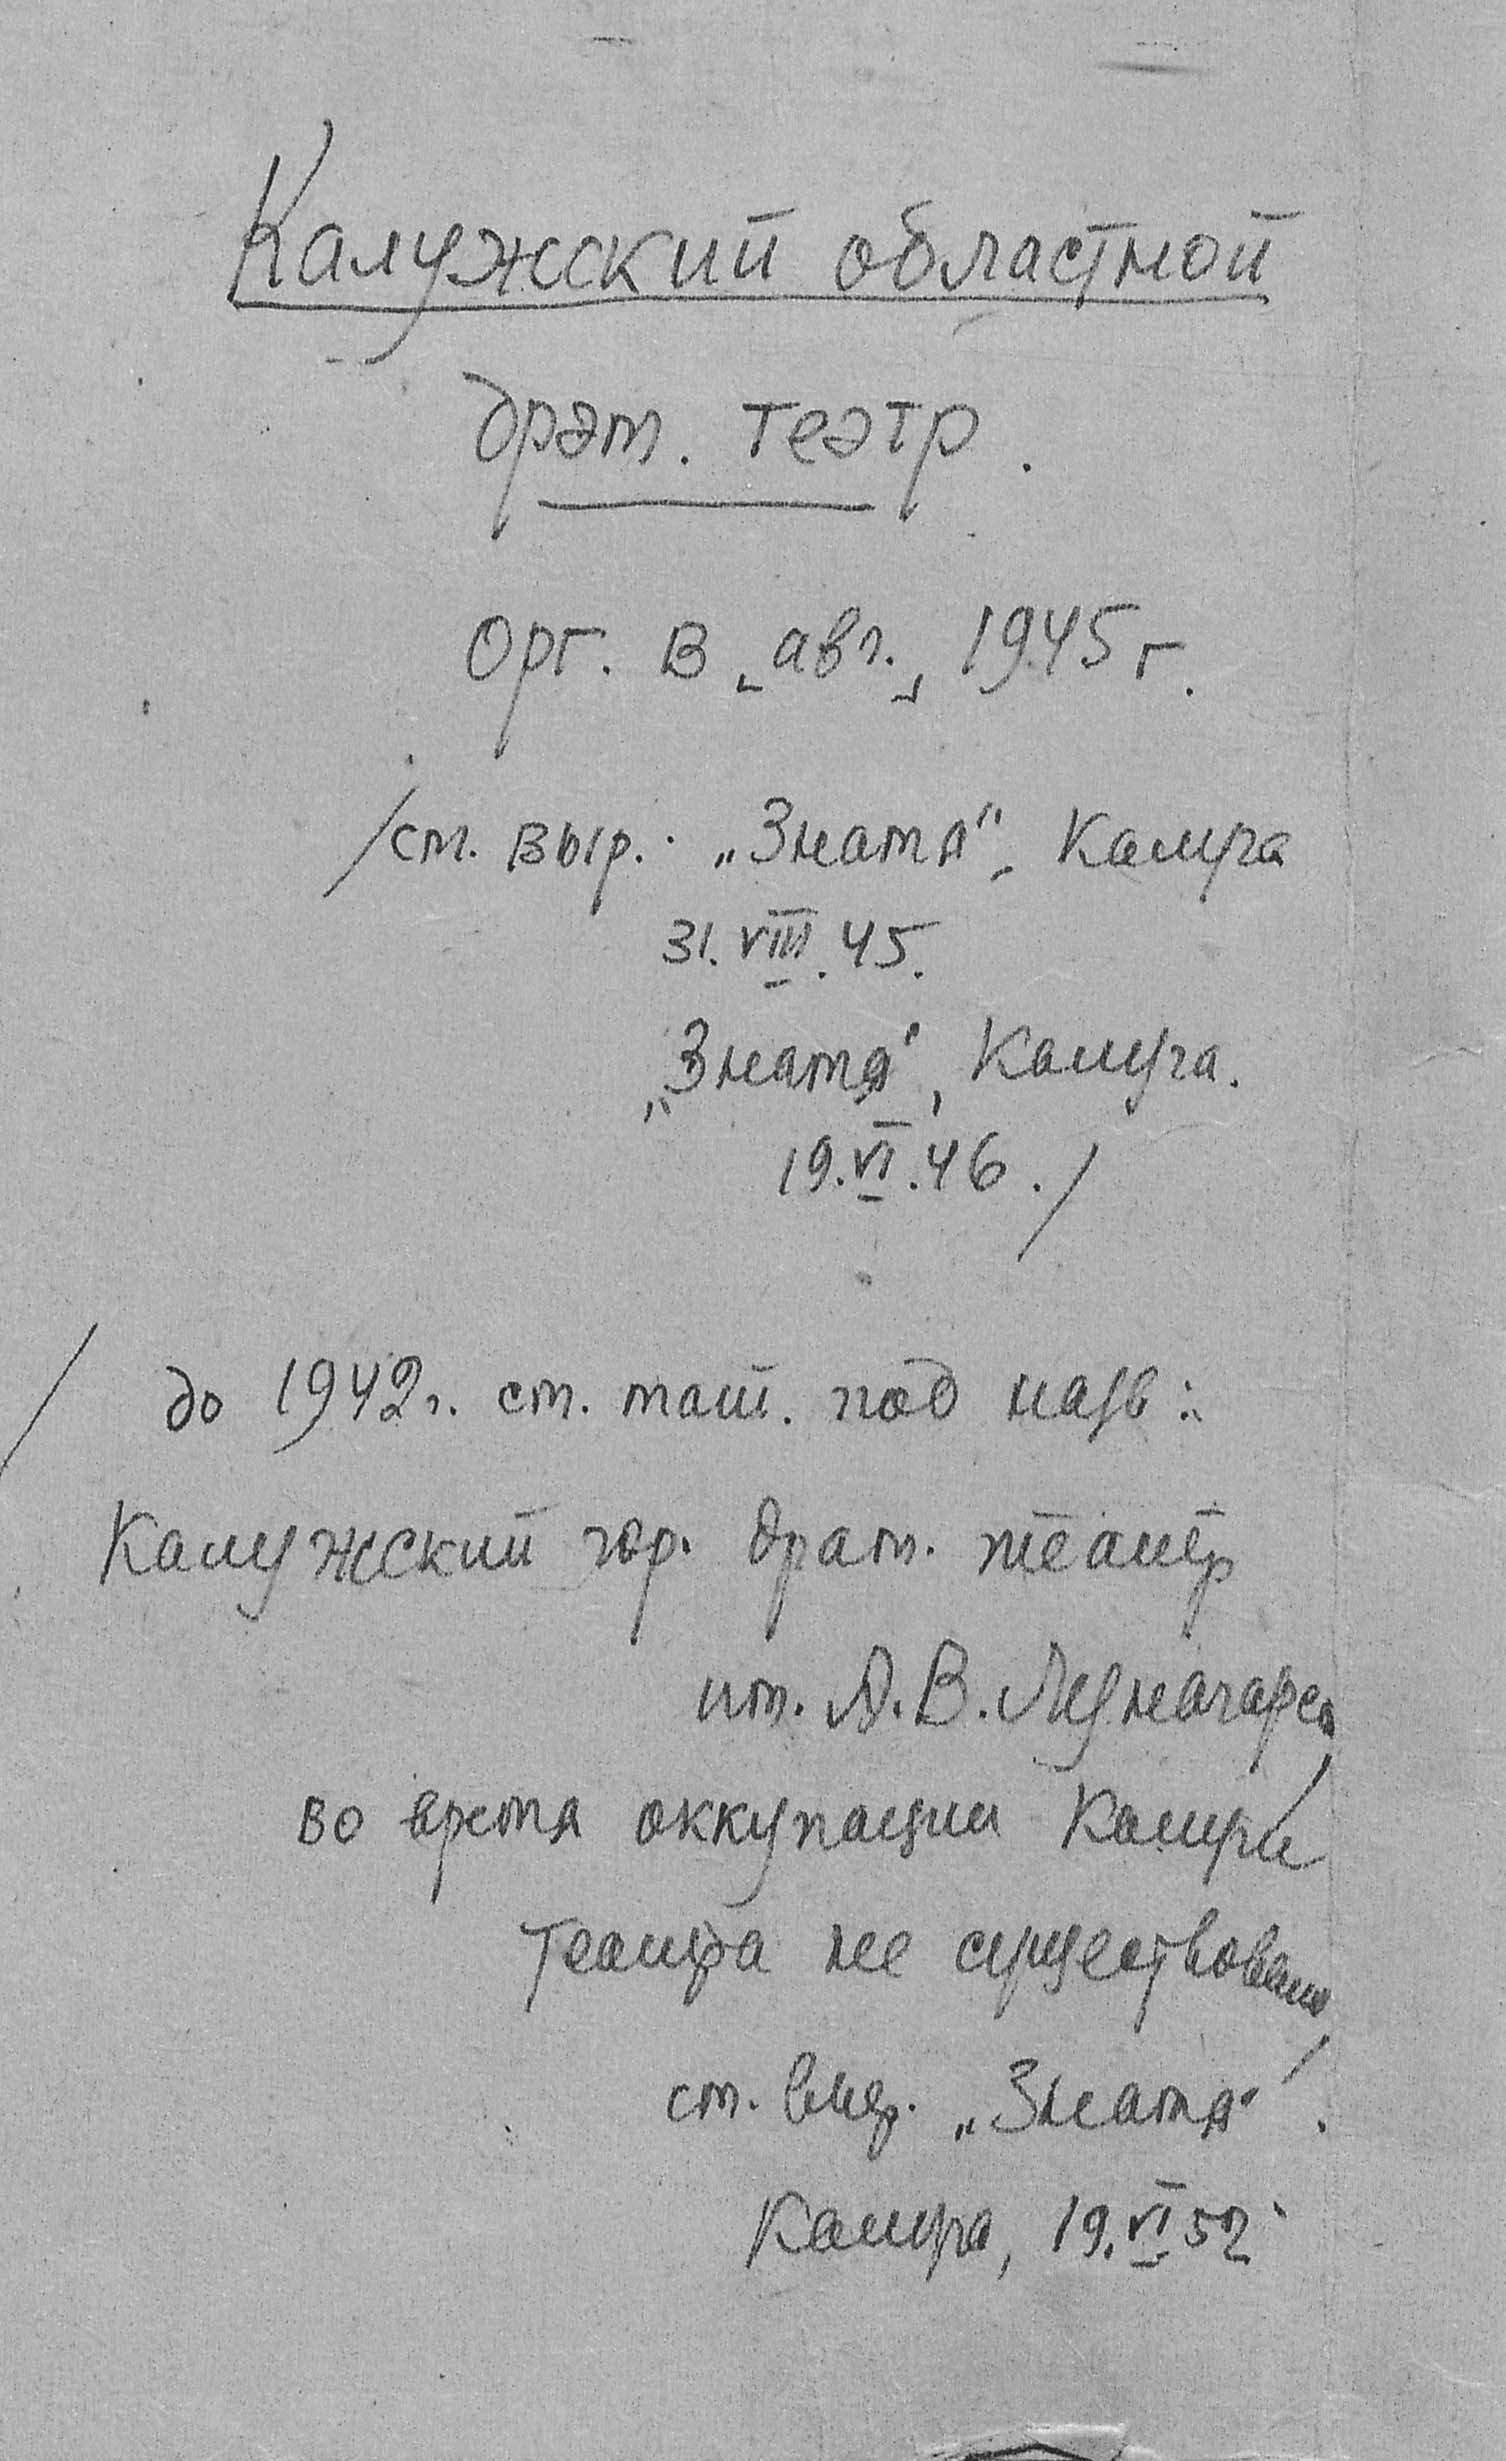 Калужский областной
драм. театр.
Орг. в „авг.„ 1945 г.
/см. выр.: „Знамя“, Калуга
31.VIII.45.
„Знамя“, Калуга.
19.VI.46./
/до 1942 г. см. маш. под назв.:
Калужский гор. драм. театр
им. А. В. Луначарск.
во время оккупации Калуги
театра не существовало/
см. выр. „Знамя“.
Калуга, 19.VI.52.